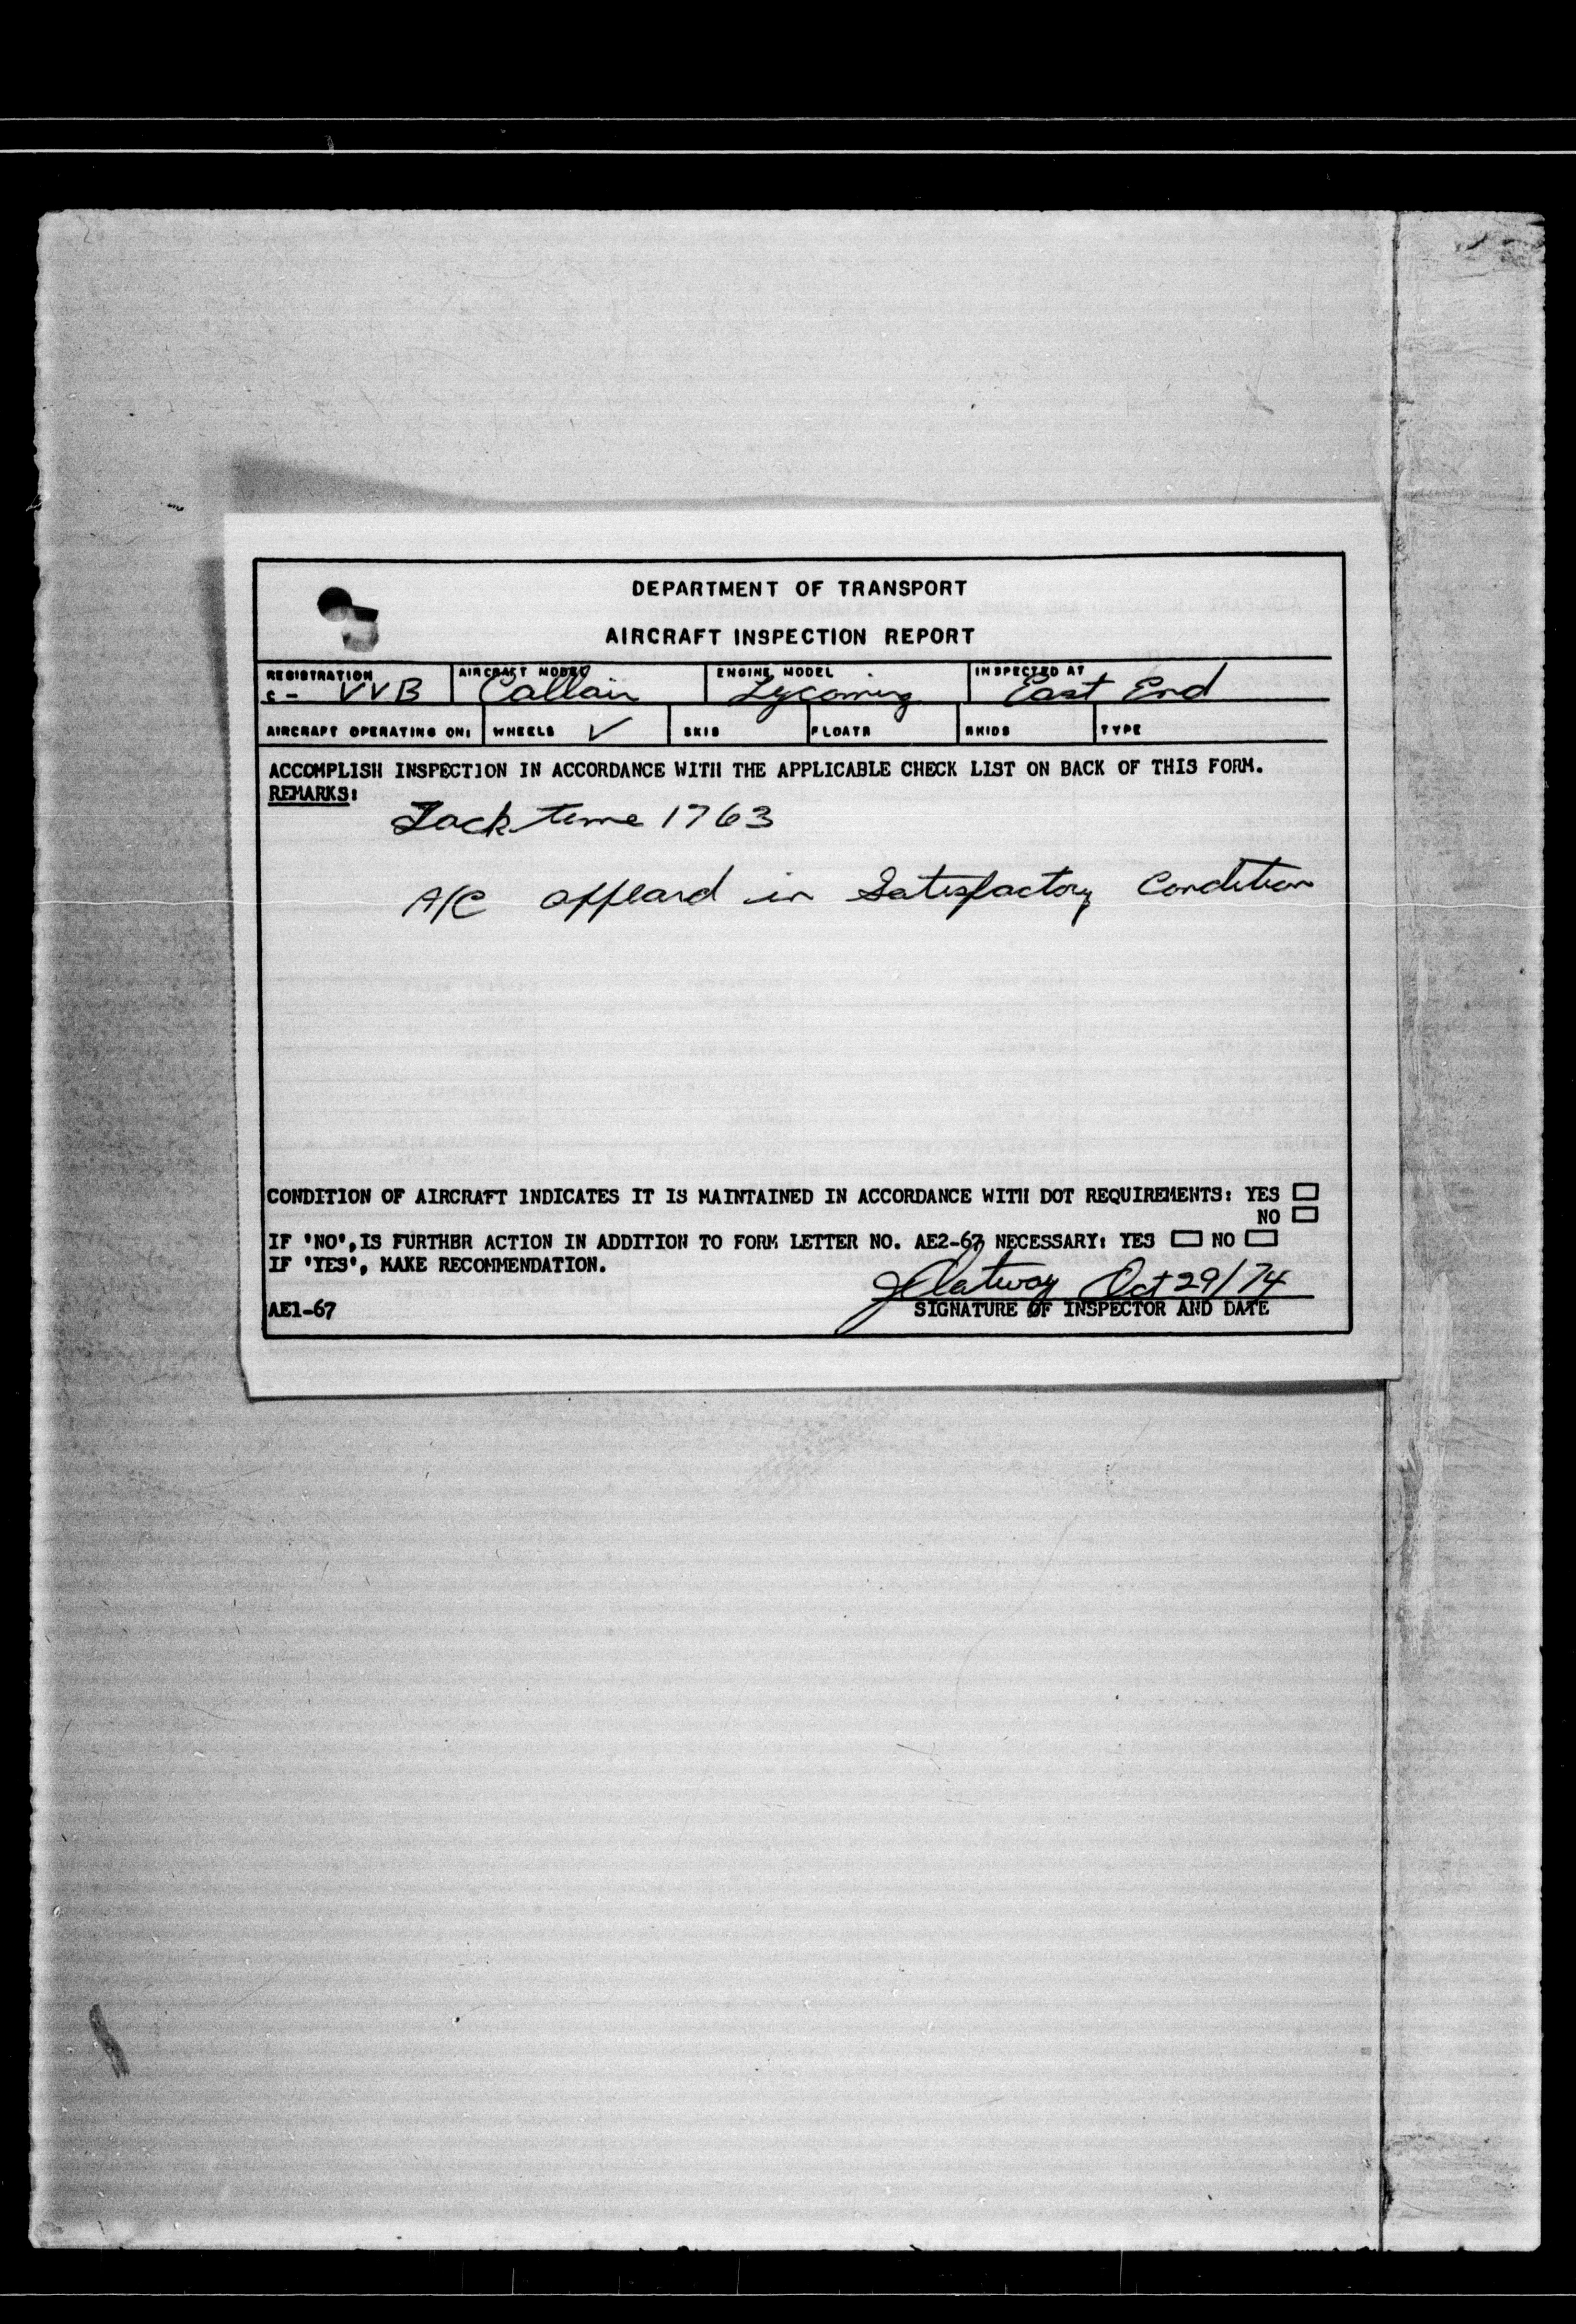 DEPARTMENT OF TRANSPORT
AIRCRAFT INSPECTION REPORT
REGISTRATION AIRCRAFT MODEL ENGINE MODEL INSPECTED AT
C- VVB Callair Lycoming East End
AIRCRAFT OPERATING ON: WHEELS ✓ SKIS FLOATS SKIDS TYPE
ACCOMPLISH INSPECTION IN ACCORDANCE WITH THE APPLICABLE CHECK LIST ON BACK OF THIS FORM.
REMARKS:
Tack time 1763
A/C appeard in Satisfactory Condition
CONDITION OF AIRCRAFT INDICATES IT IS MAINTAINED IN ACCORDANCE WITH DOT REQUIREMENTS: YES
NO
IF 'NO', IS FURTHER ACTION IN ADDITION TO FORM LETTER NO. AE2-67 NECESSARY: YES NO
IF 'YES', MAKE RECOMMENDATION.
Oct 29/74
AE1-67 SIGNATURE OF INSPECTOR AND DATE